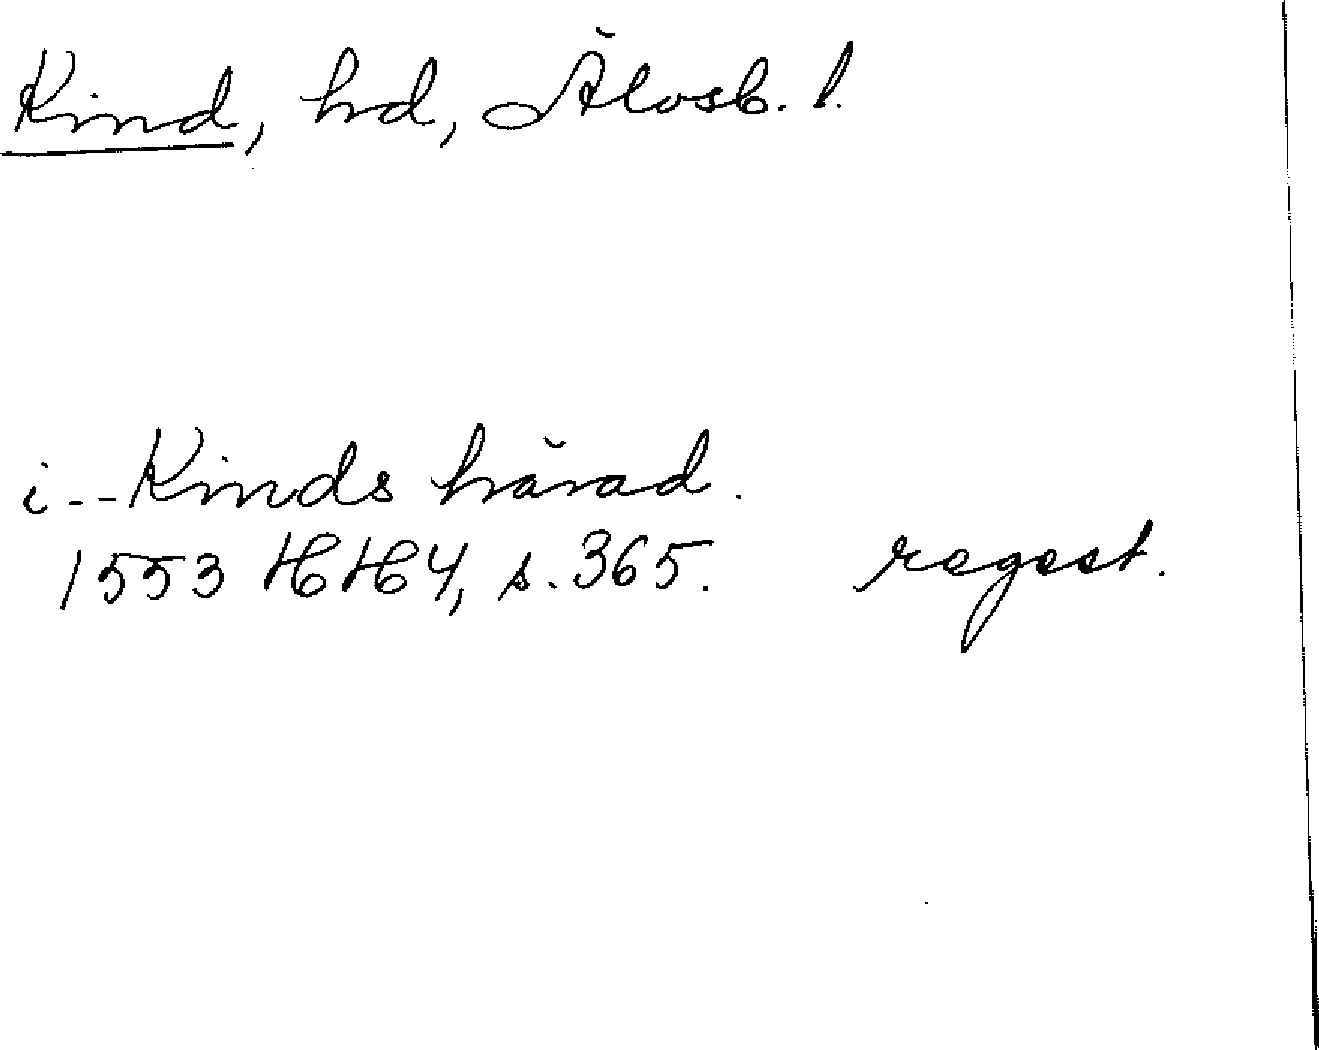 Kind, hd, Älvsb. l.
i -- Kinds härad.
1553 HH 4, s. 365. regest.